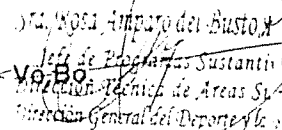 Sra. Rosa Amparo del Busto
Jefe de Programas Sustanti
Vo Bo
Dirección Técnica de Areas S
Dirección General del Deporte y la